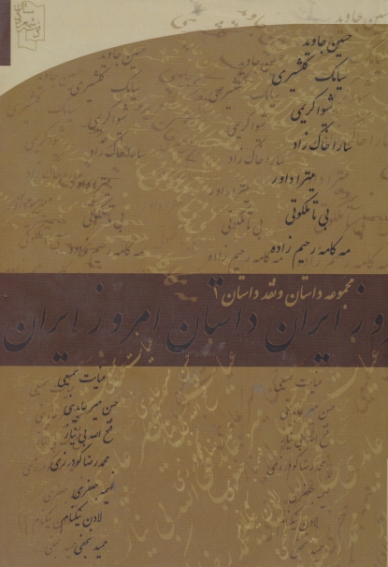 حسین جاوید
سیامک گلشیری
شیوا کریمی
سارا خاک زاد
میترا داور
بی تا ملکوتی
مه کامه رحیم زاده
مجموعه داستان و نقد داستان ۱
داستان امروز ایران
عنایت سمیعی
حسن میرعابدینی
فتح الله بی نیاز
محمدرضا گودرزی
جعفری
لادن نیکنام
حمید نجفی